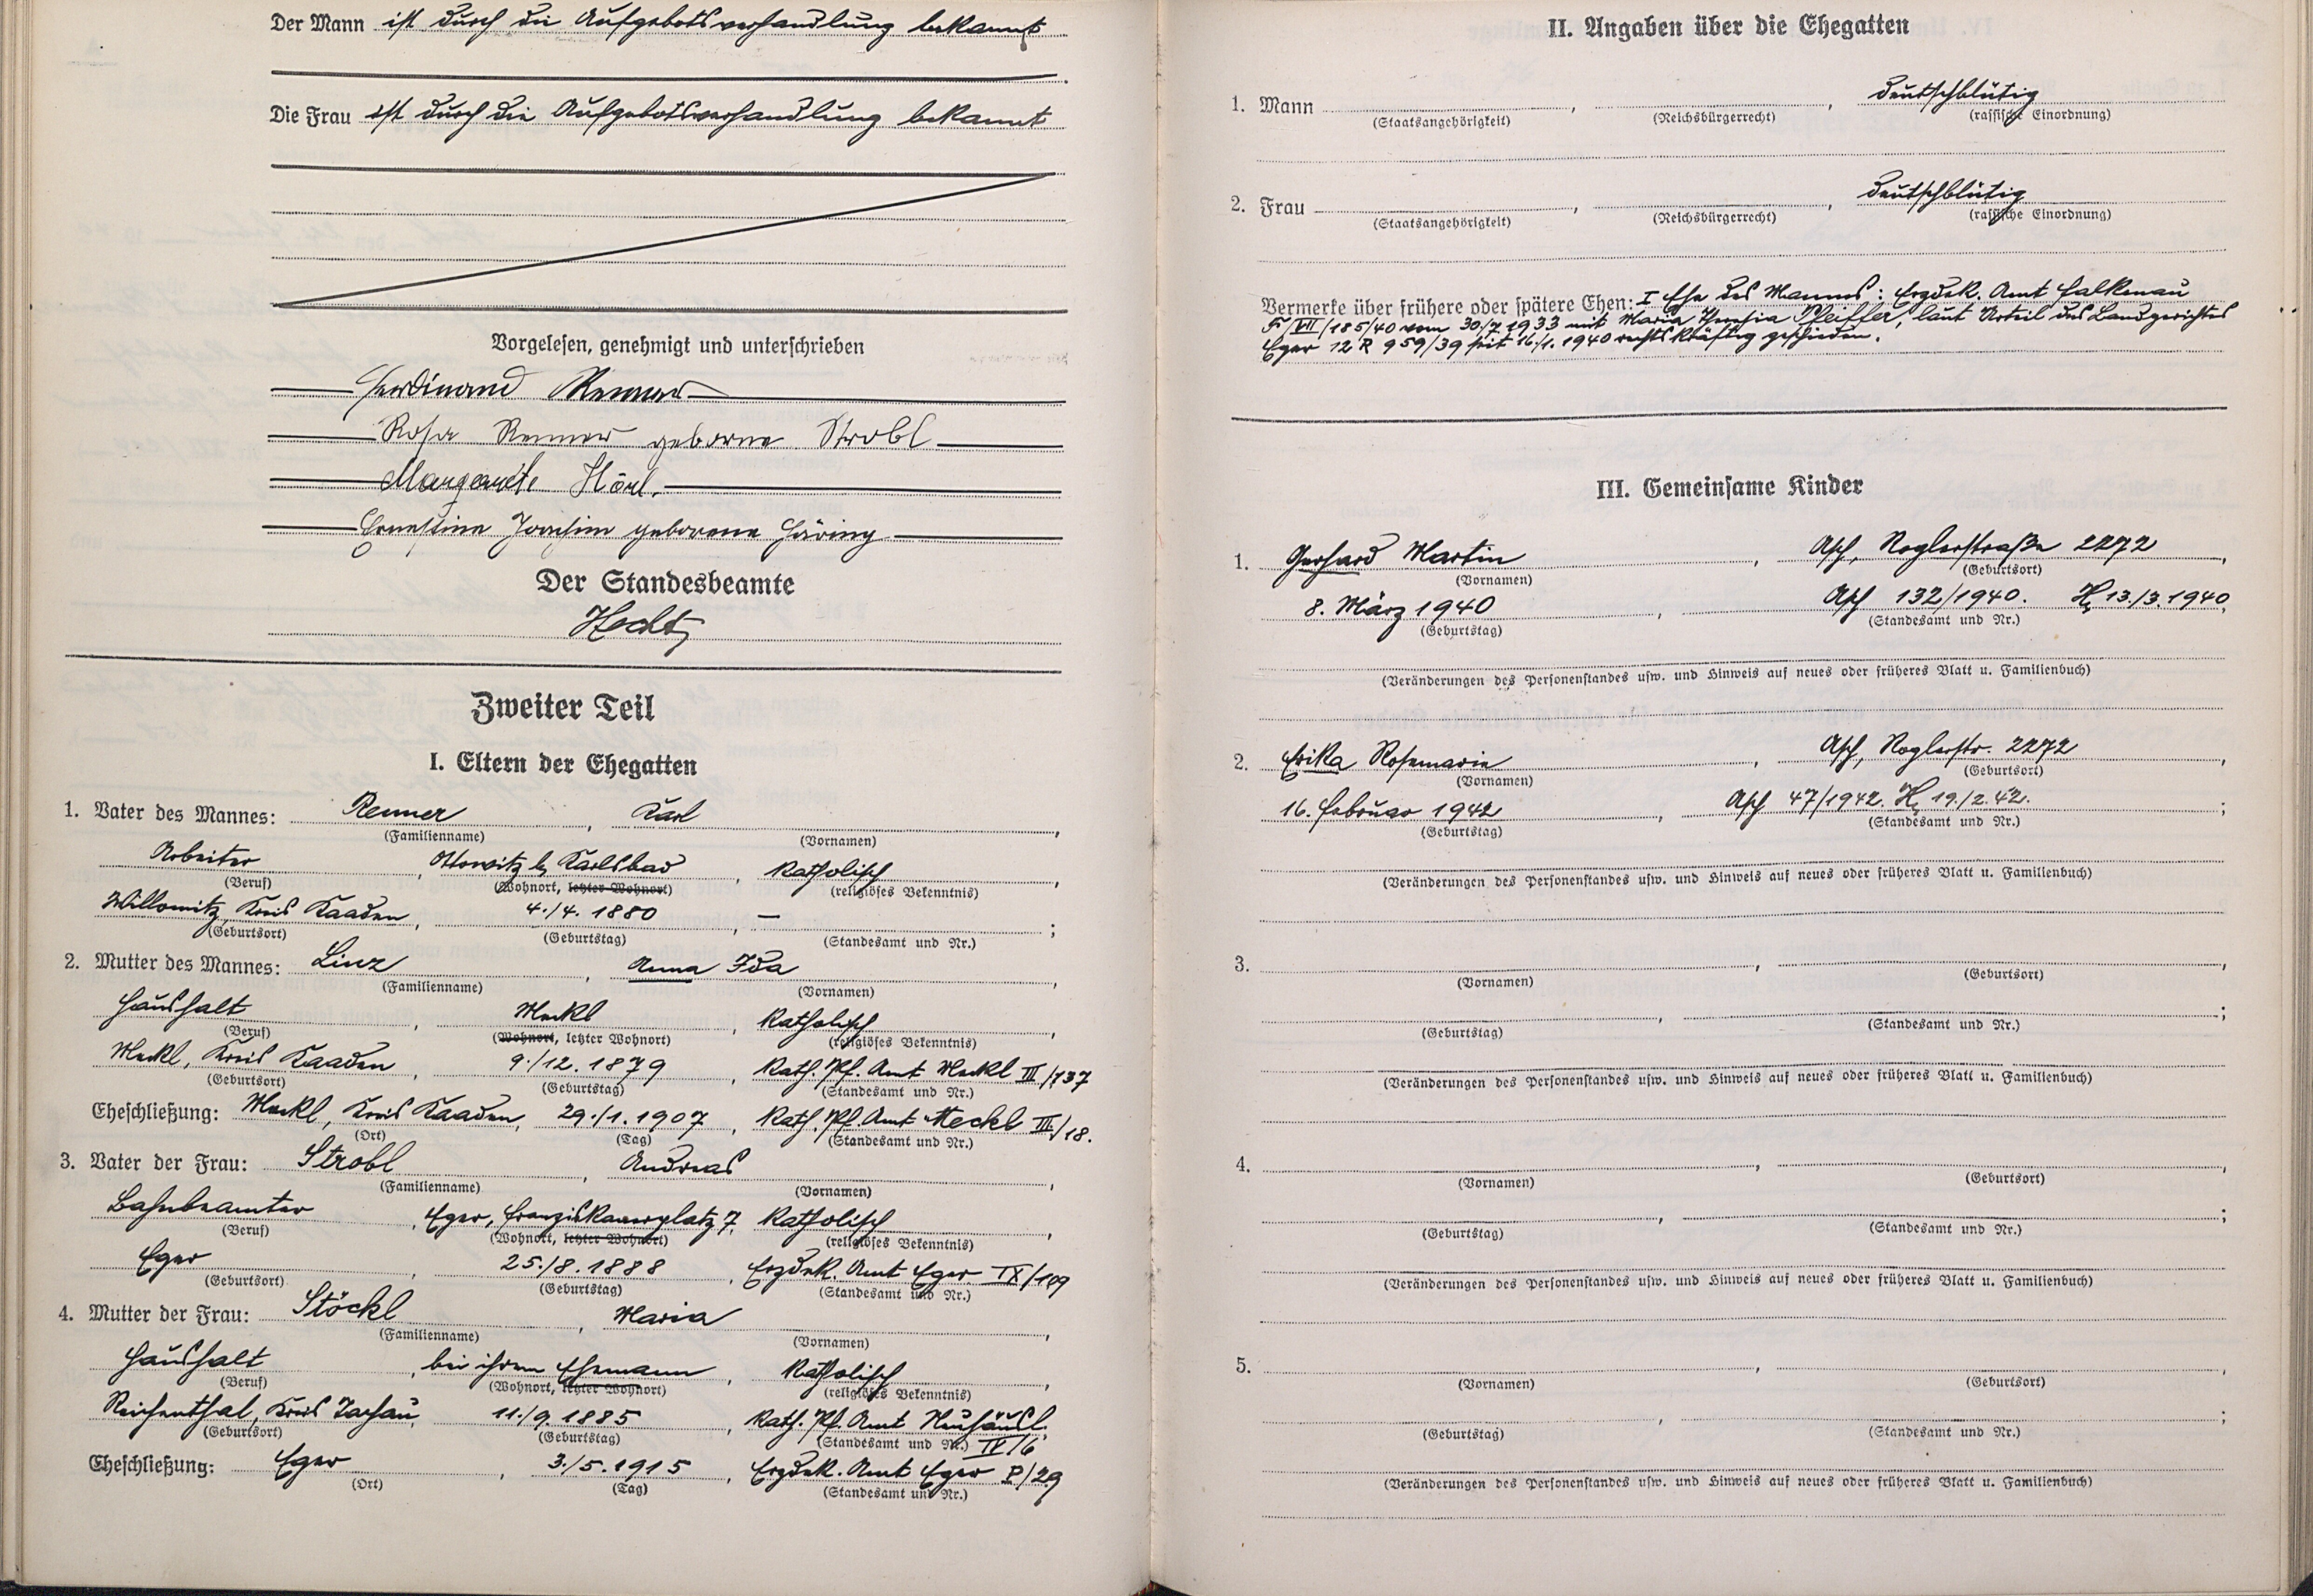 Der Mann ist durch die Aufgebotsverhandlung bekannt
Die Frau ist durch die Aufgebotsverhandlung bekannt
Vorgelesen, genehmigt und unterschrieben
Ferdinand Renner
Rosa Renner geborne Strobl
Margarete Hörl.
Ernestine Joachim geborene Häring
Der Standesbeamte
Zweiter Teil
I. Eltern der Ehegatten
1. Vater des Mannes: Renner, Karl
(Familienname) (Vornamen)
Arbeiter, Ottowitz b. Karlsbad, katholisch,
(Beruf) (Wohnort, letzter Wohnort) (religiöses Bekenntnis)
Willomitz, Kreis Kaaden, 4./4. 1880, — ;
(Geburtsort) (Geburtstag) (Standesamt und Nr.)
2. Mutter des Mannes: Linz, Anna Ida,
(Familienname) (Vornamen)
Haushalt, Meckl, katholisch,
(Beruf) (Wohnort, letzter Wohnort) (religiöses Bekenntnis)
Meckl, Kreis Kaaden, 9./12. 1879, Kath. Pf. Amt Meckl III/137
(Geburtsort) (Geburtstag) (Standesamt und Nr.)
Eheschließung: Meckl, Kreis Kaaden, 29./1. 1907, Kath. Pf. Amt Meckl III/18.
(Ort) (Tag) (Standesamt und Nr.)
3. Vater der Frau: Strobl, Andreas,
(Familienname) (Vornamen)
Bahnbeamter, Eger, Franziskanerplatz 7, katholisch,
(Beruf) (Wohnort, letzter Wohnort) (religiöses Bekenntnis)
Eger, 25./8. 1888, Erzdek. Amt Eger IX/109
(Geburtsort) (Geburtstag) (Standesamt und Nr.)
4. Mutter der Frau: Stöckl, Maria,
(Familienname) (Vornamen)
Haushalt, bei ihrem Ehemann, katholisch,
(Beruf) (Wohnort, letzter Wohnort) (religiöses Bekenntnis)
Reichenthal, Kreis Tachau, 11./9. 1885, Kath. Pf. Amt Neuhäusl.
(Geburtsort) (Geburtstag) (Standesamt und Nr.) IV/6
Eheschließung: Eger, 3./5. 1915, Erzdek. Amt Eger P/29
(Ort) (Tag) (Standesamt und Nr.)
II. Angaben über die Ehegatten
1. Mann , , deutschblütig
(Staatsangehörigkeit) (Reichsbürgerrecht) (rassische Einordnung)
2. Frau , , deutschblütig
(Staatsangehörigkeit) (Reichsbürgerrecht) (rassische Einordnung)
Vermerke über frühere oder spätere Ehen: I Ehe des Mannes: Erzdek. Amt Falkenau
F/VII/185/40 vom 30./7 1933 mit Maria Theresia Pfeiffer, laut Urteil des Landgerichtes
Eger 12 R 959/39 seit 16./1. 1940 rechtskräftig geschieden.
III. Gemeinsame Kinder
1. Gerhard Martin, Asch, Roglerstraße 2272,
(Vornamen) (Geburtsort)
8. März 1940, Asch 132/1940. H, 13./3. 1940,
(Geburtstag) (Standesamt und Nr.)
(Veränderungen des Personenstandes usw. und Hinweis auf neues oder früheres Blatt u. Familienbuch)
2. Erika Rosemarie, Asch, Roglerstr. 2272,
(Vornamen) (Geburtsort)
16. Februar 1942, Asch 47/1942. H, 19./2. 42. ;
(Geburtstag) (Standesamt und Nr.)
(Veränderungen des Personenstandes usw. und Hinweis auf neues oder früheres Blatt u. Familienbuch)
3. , ,
(Vornamen) (Geburtsort)
, ;
(Geburtstag) (Standesamt und Nr.)
(Veränderungen des Personenstandes usw. und Hinweis auf neues oder früheres Blatt u. Familienbuch)
4. , ,
(Vornamen) (Geburtsort)
, ;
(Geburtstag) (Standesamt und Nr.)
(Veränderungen des Personenstandes usw. und Hinweis auf neues oder früheres Blatt u. Familienbuch)
5. , ,
(Vornamen) (Geburtsort)
, ;
(Geburtstag) (Standesamt und Nr.)
(Veränderungen des Personenstandes usw. und Hinweis auf neues oder früheres Blatt u. Familienbuch)